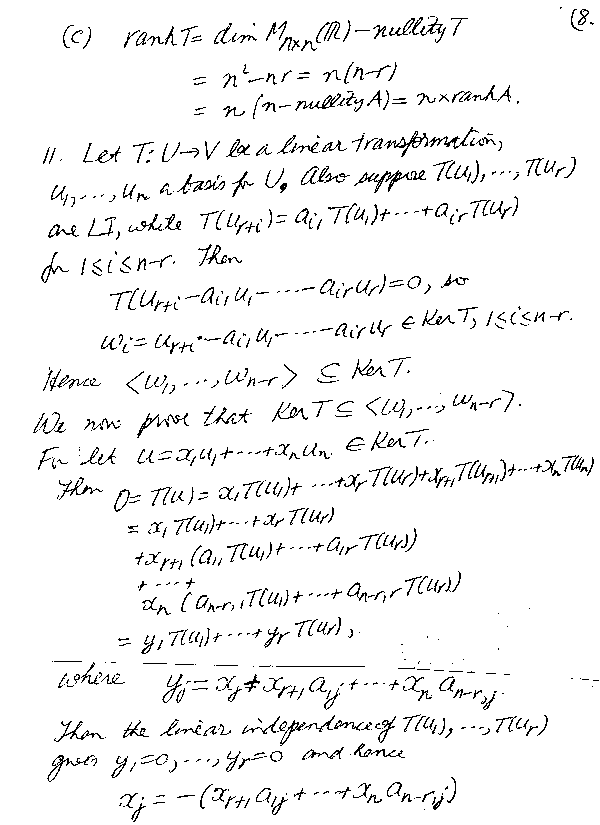 (8.
(c) rank T = dim Mₙₓₙ(ℝ) − nullity T
= n² − nr = n(n−r)
= n (n − nullity A) = n × rank A.
11. Let T: U → V be a linear transformation,
u₁, ..., uₙ a basis for U. Also suppose T(u₁), ..., T(uᵣ)
are LI, while T(u_{r+i}) = a_{i1} T(u₁) + ··· + a_{ir} T(uᵣ)
for 1 ≤ i ≤ n−r. Then
T(u_{r+i} − a_{i1} u₁ − ····· − a_{ir} uᵣ) = 0, so
wᵢ = u_{r+i} − a_{i1} u₁ − ····· − a_{ir} uᵣ ∈ Ker T, 1 ≤ i ≤ n−r.
Hence ⟨w₁, ..., w_{n−r}⟩ ⊆ Ker T.
We now prove that Ker T ⊆ ⟨w₁, ..., w_{n−r}⟩.
For let u = x₁u₁ + ··· + xₙuₙ ∈ Ker T.
Then 0 = T(u) = x₁T(u₁) + ··· + xᵣT(uᵣ) + x_{r+1}T(u_{r+1}) + ··· + xₙT(uₙ)
= x₁ T(u₁) + ··· + xᵣ T(uᵣ)
+ x_{r+1} (a₁₁ T(u₁) + ··· + a_{1r} T(uᵣ))
+ ··· +
xₙ (a_{n−r,1} T(u₁) + ··· + a_{n−r,r} T(uᵣ))
= y₁ T(u₁) + ··· + yᵣ T(uᵣ),
where yⱼ = xⱼ + x_{r+1} a_{1j} + ··· + xₙ a_{n−r,j}.
Then the linear independence of T(u₁), ..., T(uᵣ)
gives y₁ = 0, ..., yᵣ = 0 and hence
xⱼ = −(x_{r+1} a_{1j} + ··· + xₙ a_{n−r,j})